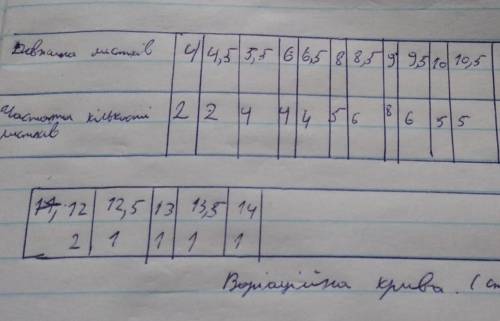 Довжина листків 4 4,5 5,5 6 6,5 8 8,5 9 9,5 10 10,5
Частота кількості 2 2 4 4 4 5 6 8 6 5 5
листків
12 12,5 13 13,5 14
2 1 1 1 1
Варіаційна крива. (ст